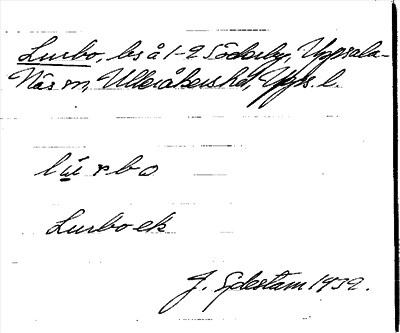 Lurbo, ls å 1-2 Söderby, Uppsala-
Näs sn, Ulleråkers hd, Upps. l.
Lurbo ek
J. Sjdestam 1939.